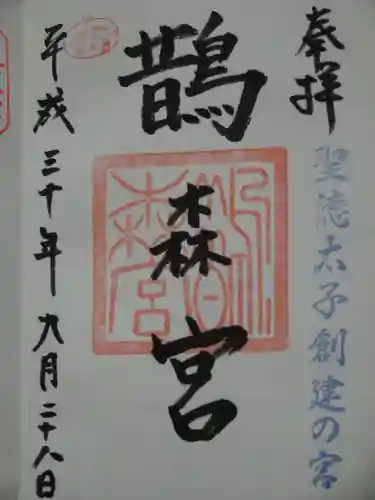 奉拝
聖徳太子創建の宮
鵲森宮
平成三十年九月二十八日